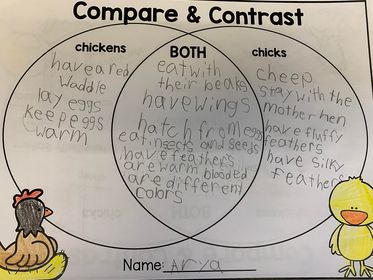 Compare & Contrast
chickens
have a red
Waddle
lay eggs
Keep eggs
warm
BOTH
eat with
their beaks
have wings
hatch from egg
eat insects and seeds
have feathers
are warm blooded
are different
colors
chicks
cheep
stay with the
mother hen
have fluffy
feathers
have silky
feathers
Name: Arya